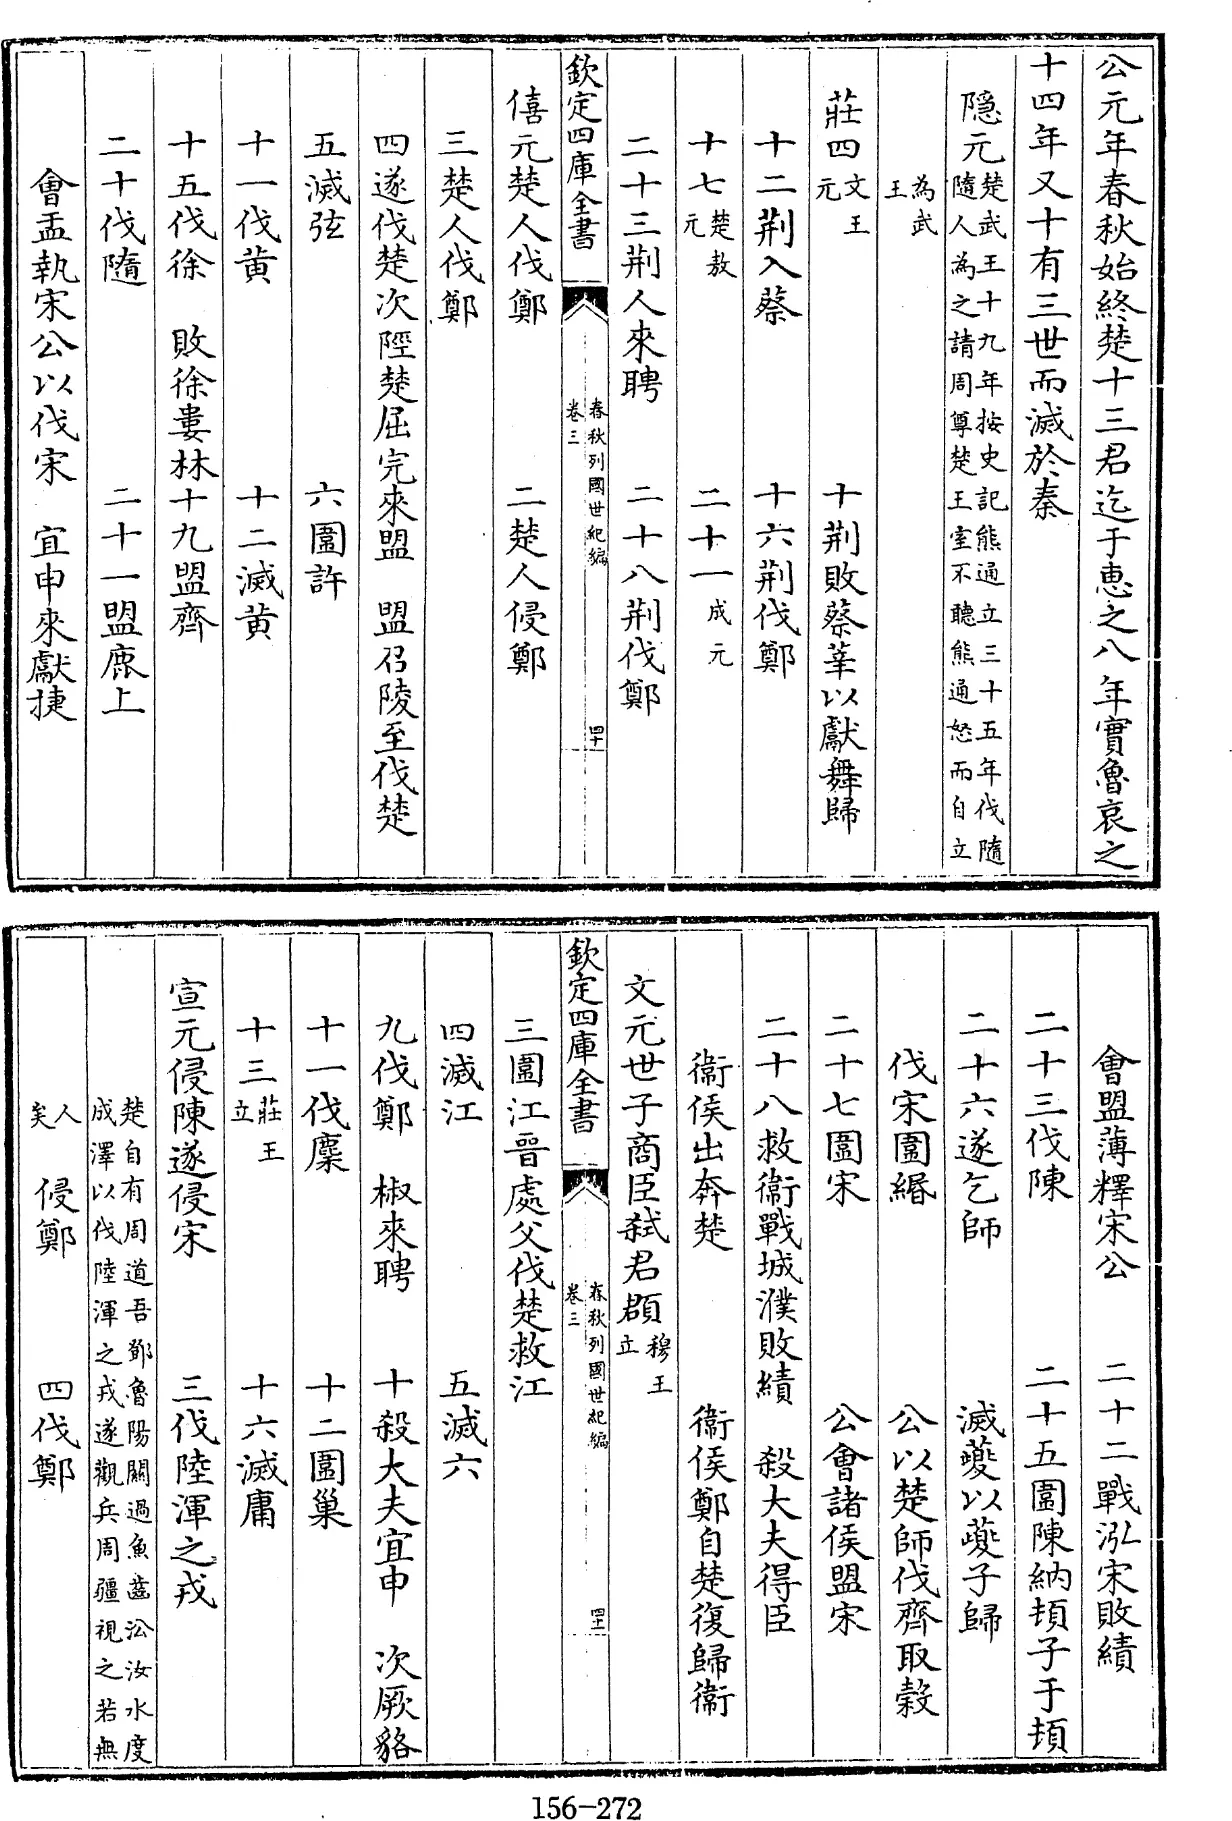 公元年春秋始終楚十三君迄于惠之八年實魯哀之
十四年又十有三世而滅於秦
隱元楚武王十九年按史記熊通立三十五年伐隨
隨人為之請周尊楚王室不聽熊通怒而自立
為武
王
莊四文王
元
十荆敗蔡莘以獻舞歸
十二荆入蔡
十六荆伐鄭
十七楚敖
元
二十一成元
二十三荆人來聘
二十八荆伐鄭
欽定四庫全書
春秋列國世紀編
卷三
四十
僖元楚人伐鄭
二楚人侵鄭
三楚人伐鄭
四遂伐楚次陘楚屈完來盟 盟召陵至伐楚
五滅弦
六圍許
十一伐黄
十二滅黄
十五伐徐 敗徐婁林
十九盟齊
二十伐隨
二十一盟鹿上
會盂執宋公以伐宋 宜申來獻捷
會盟薄釋宋公
二十二戰泓宋敗績
二十三伐陳
二十五圍陳納頓子于頓
二十六遂乞師
滅夔以夔子歸
伐宋圍緡
公以楚師伐齊取穀
二十七圍宋
公會諸侯盟宋
二十八救衞戰城濮敗績 殺大夫得臣
衞侯出奔楚
衞侯鄭自楚復歸衞
文元世子商臣弑君頵穆王
立
欽定四庫全書
春秋列國世紀編
卷三
四十一
三圍江晉處父伐楚救江
四滅江
五滅六
九伐鄭 椒來聘
十殺大夫宜申 次厥貉
十一伐麇
十二圍巢
十三莊王
立
十六滅庸
宣元侵陳遂侵宋
三伐陸渾之戎
楚自有周道吾鄧魯陽關過魚齒汕汝水度
成澤以伐陸渾之戎遂觀兵周疆視之若無
人
矣
侵鄭
四伐鄭
156-272